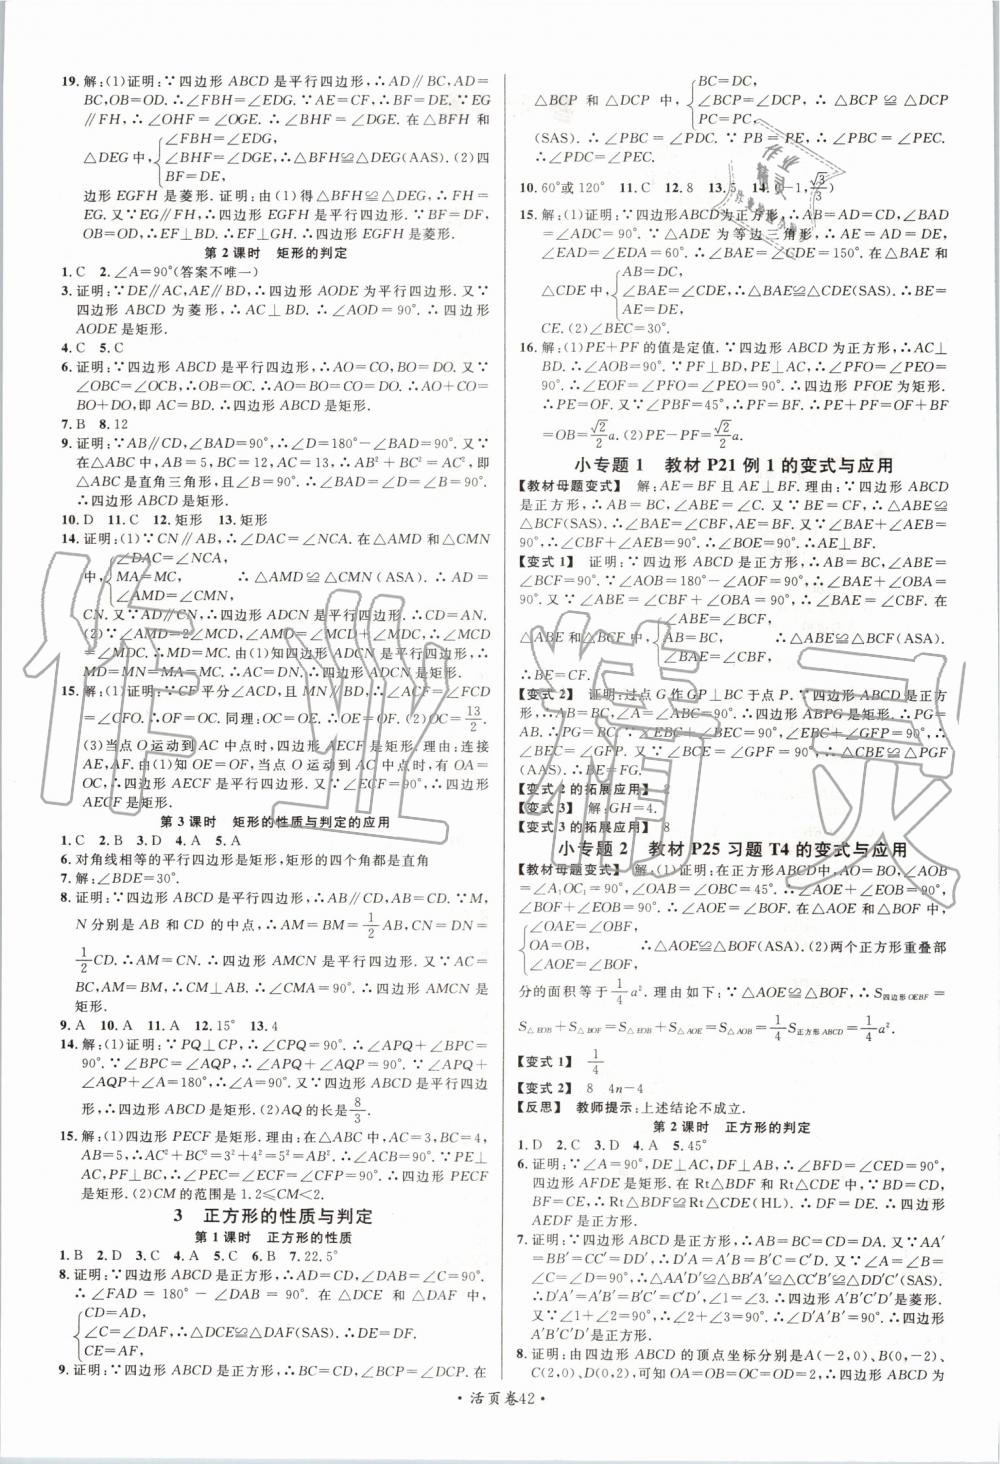 19. 解:(1)证明:∵四边形 ABCD 是平行四边形,∴AD∥BC,AD=
BC,OB=OD.∴∠FBH=∠EDG.∵AE=CF,∴BF=DE.∵EG
∥FH,∴∠OHF=∠OGE.∴∠BHF=∠DGE.在△BFH 和
△DEG中,{∠FBH=∠EDG,
∠BHF=∠DGE,∴△BFH≌△DEG(AAS).(2)四
BF=DE,
边形 EGFH 是菱形.证明:由(1)得△BFH≌△DEG,∴FH=
EG.又∵EG∥FH,∴四边形 EGFH 是平行四边形.∵BF=DF,
OB=OD,∴EF⊥BD.∴EF⊥GH.∴四边形 EGFH 是菱形.
第 2 课时 矩形的判定
1. C 2. ∠A=90°(答案不唯一)
3. 证明:∵DE∥AC,AE∥BD,∴四边形 AODE 为平行四边形.又∵
四边形 ABCD 为菱形,∴AC⊥BD.∴∠AOD=90°.∴四边形
AODE 是矩形.
4. C 5. C
6. 证明:∵四边形 ABCD 是平行四边形,∴AO=CO,BO=DO.又∵
∠OBC=∠OCB,∴OB=OC.∴AO=CO=BO=DO.∴AO+CO=
BO+DO,即 AC=BD.∴四边形 ABCD 是矩形.
7. B 8. 12
9. 证明:∵AB∥CD,∠BAD=90°,∴∠D=180°-∠BAD=90°.又∵
在△ABC 中,AB=5,BC=12,AC=13,∴AB²+BC²=AC²,即
△ABC 是直角三角形,且∠B=90°.∴∠B=∠BAD=∠D=90°.
∴四边形 ABCD 是矩形.
10. D 11. C 12. 矩形 13. 矩形
14. 证明:(1)∵CN∥AB,∴∠DAC=∠NCA.在△AMD 和△CMN
中,{∠DAC=∠NCA,
MA=MC, ∴△AMD≌△CMN(ASA).∴AD=
∠AMD=∠CMN,
CN.又∵AD∥CN,∴四边形 ADCN 是平行四边形.∴CD=AN.
(2)∵∠AMD=2∠MCD,∠AMD=∠MCD+∠MDC,∴∠MCD
=∠MDC.∴MD=MC.由(1)知四边形 ADCN 是平行四边形,∴
MD=MN=MA=MC.∴AC=DN.∴四边形 ADCN 是矩形.
15. 解:(1)证明:∵CF 平分∠ACD,且 MN∥BD,∴∠ACF=∠FCD
=∠CFO.∴OF=OC.同理:OC=OE.∴OE=OF.(2)OC=13/2.
(3)当点 O 运动到 AC 中点时,四边形 AECF 是矩形.理由:连接
AE,AF.由(1)知 OE=OF,当点 O 运动到 AC 中点时,有 OA=
OC,∴四边形 AECF 是平行四边形.又∵∠ECF=90°,∴四边形
AECF 是矩形.
第 3 课时 矩形的性质与判定的应用
1. C 2. B 3. D 4. A 5. A
6. 对角线相等的平行四边形是矩形,矩形的四个角都是直角
7. 解:∠BDE=30°.
8. 证明:∵四边形 ABCD 是平行四边形,∴AB=CD,AB∥CD.∵M,
N 分别是 AB 和 CD 的中点,∴AM=BM=1/2AB,CN=DN=
1/2CD.∴AM=CN.∴四边形 AMCN 是平行四边形.又∵AC=
BC,AM=BM,∴CM⊥AB.∴∠CMA=90°.∴四边形 AMCN 是
矩形.
9. A 10. A 11. A 12. 15° 13. 4
14. 解:(1)证明:∵PQ⊥CP,∴∠CPQ=90°.∴∠APQ+∠BPC=
90°.∵∠BPC=∠AQP,∴∠APQ+∠AQP=90°.∴∠APQ+
∠AQP+∠A=180°,∴∠A=90°.又∵四边形 ABCD 是平行四边
形,∴四边形 ABCD 是矩形.(2)AQ的长是8/3.
15. 解:(1)四边形 PECF 是矩形.理由:在△ABC 中,AC=3,BC=4,
AB=5,∴AC²+BC²=3²+4²=5²=AB².∴∠ACB=90°.又∵PE⊥
AC,PF⊥BC,∴∠PEC=∠CFP=∠ACB=90°.∴四边形 PECF
是矩形.(2)CM 的范围是 1.2≤CM<2.
3 正方形的性质与判定
第 1 课时 正方形的性质
1. B 2. D 3. C 4. C 5. A 6. B 7. 22.5°
8. 证明:∵四边形 ABCD 是正方形,∴AD=CD,∠DAB=∠C=90°.
∴∠FAD=180°-∠DAB=90°.在△DCE 和△DAF 中,
{CD=AD,
∠C=∠DAF,∴△DCE≌△DAF(SAS).∴DE=DF.
CE=AF,
9. 证明:∵四边形 ABCD 是正方形,∴BC=CD,∠BCP=∠DCP.在
△BCP 和△DCP 中,{BC=DC,
∠BCP=∠DCP,∴△BCP≌△DCP
PC=PC,
(SAS).∴∠PBC=∠PDC.∵PB=PE,∴∠PBC=∠PEC.
∴∠PDC=∠PEC.
10. 60°或 120° 11. C 12. 8 13. 5 14. (-1,√3/3)
15. 解:(1)证明:∵四边形 ABCD 为正方形,∴AB=AD=CD,∠BAD
=∠ADC=90°.∵△ADE 为等边三角形,∴AE=AD=DE,
∠EAD=∠EDA=60°.∴∠BAE=∠CDE=150°.在△BAE 和
△CDE 中,{AB=DC,
∠BAE=∠CDE,∴△BAE≌△CDE(SAS).∴BE=
AE=DE,
CE.(2)∠BEC=30°.
16. 解:(1)PE+PF 的值是定值.∵四边形 ABCD 为正方形,∴AC⊥
BD.∴∠AOB=90°.∵PF⊥BD,PE⊥AC,∴∠PFO=∠PEO=
90°.∴∠EOF=∠PFO=∠PEO=90°.∴四边形 PFOE 为矩形.
∴PE=OF.又∵∠PBF=45°,∴PF=BF.∴PE+PF=OF+BF
=OB=√2/2a.(2)PE-PF=√2/2a.
小专题 1 教材 P21 例 1 的变式与应用
【教材母题变式】 解:AE=BF且AE⊥BF.理由:∵四边形 ABCD
是正方形,∴AB=BC,∠ABE=∠C.又∵BE=CF,∴△ABE≌
△BCF(SAS).∴∠BAE=∠CBF,AE=BF.又∵∠BAE+∠AEB=
90°,∴∠CBF+∠AEB=90°.∴∠BOE=90°.∴AE⊥BF.
【变式 1】 证明:∵四边形 ABCD 是正方形,∴AB=BC,∠ABC=
∠BCF=90°.∵∠AOB=180°-∠AOF=90°,∴∠BAE+∠ABO=
90°.又∵∠CBF+∠ABO=90°,∴∠BAE=∠CBF.在
△ABE 和△BCF 中,{∠BAE=∠CBF,
AB=BC, ∴△ABE≌△BCF(ASA).
∠ABE=∠BCF,
∴BE=CF.
【变式 2】 证明:过点 G 作 GP⊥BC 于点 P.∵四边形 ABCD 是正方
形,∴AB=BC,∠A=∠ABC=90°.∴四边形 ABPG 是矩形.∴PG=
AB.∴BC=PG.又∵∠EBC=∠FPG=90°,
∠BEC=∠GFP.又∵∠CBE=∠GPF=90°,∴△CBE≌△PGF
(AAS).∴CE=FG.
【变式 2 的拓展应用】
【变式 3】 解:GH=4.
【变式 3 的拓展应用】 8
小专题 2 教材 P25 习题 T4 的变式与应用
【教材母题变式】 解:(1)证明:在正方形 ABCD中,AO=BO.∠AOB
=∠A₁OC₁=90°,∠OAB=∠OBC=45°.∴∠AOE+∠EOB=90°,
∠BOF+∠EOB=90°.∴∠AOE=∠BOF.在△AOE 和△BOF 中,
{∠OAE=∠OBF,
OA=OB, ∴△AOE≌△BOF(ASA).(2)两个正方形重叠部
∠AOE=∠BOF,
分的面积等于1/4a².理由如下:∵△AOE≌△BOF,∴S四边形OEBF=
S△EOB+S△BOF=S△EOB+S△AOE=S△AOB=1/4S正方形ABCD=1/4a².
【变式 1】 1/4
【变式 2】 8 4n-4
【反思】 教师提示:上述结论不成立.
第 2 课时 正方形的判定
1. D 2. C 3. D 4. A 5. 45°
6. 证明:∵∠A=90°,DE⊥AC,DF⊥AB,∴∠BFD=∠CED=90°,
四边形 AFDE 是矩形.在 Rt△BDF 和 Rt△CDE 中,∵BD=CD,
BF=CE,∴Rt△BDF≌Rt△CDE(HL).∴DF=DE.∴四边形
AEDF 是正方形.
7. 证明:∵四边形 ABCD 是正方形,∴AB=BC=CD=DA.又∵AA′
=BB′=CC′=DD′,∴D′A=A′B=B′C=C′D.∵∠A=∠B=∠C
=∠D=90°,∴△AA′D′≌△BB′A′≌△CC′B′≌△DD′C′(SAS).
∴D′A′=A′B′=B′C′=C′D′,∠1=∠3.∴四边形 A′B′C′D′是菱形.
又∵∠1+∠2=90°,∴∠2+∠3=90°.∴∠D′A′B′=90°.∴四边形
A′B′C′D′是正方形.
8. 证明:由四边形 ABCD 的顶点坐标分别是 A(-2,0),B(0,-2),
C(2,0),D(0,2),可得 OA=OB=OC=OD.∴四边形 ABCD 为
• 活页卷42 •